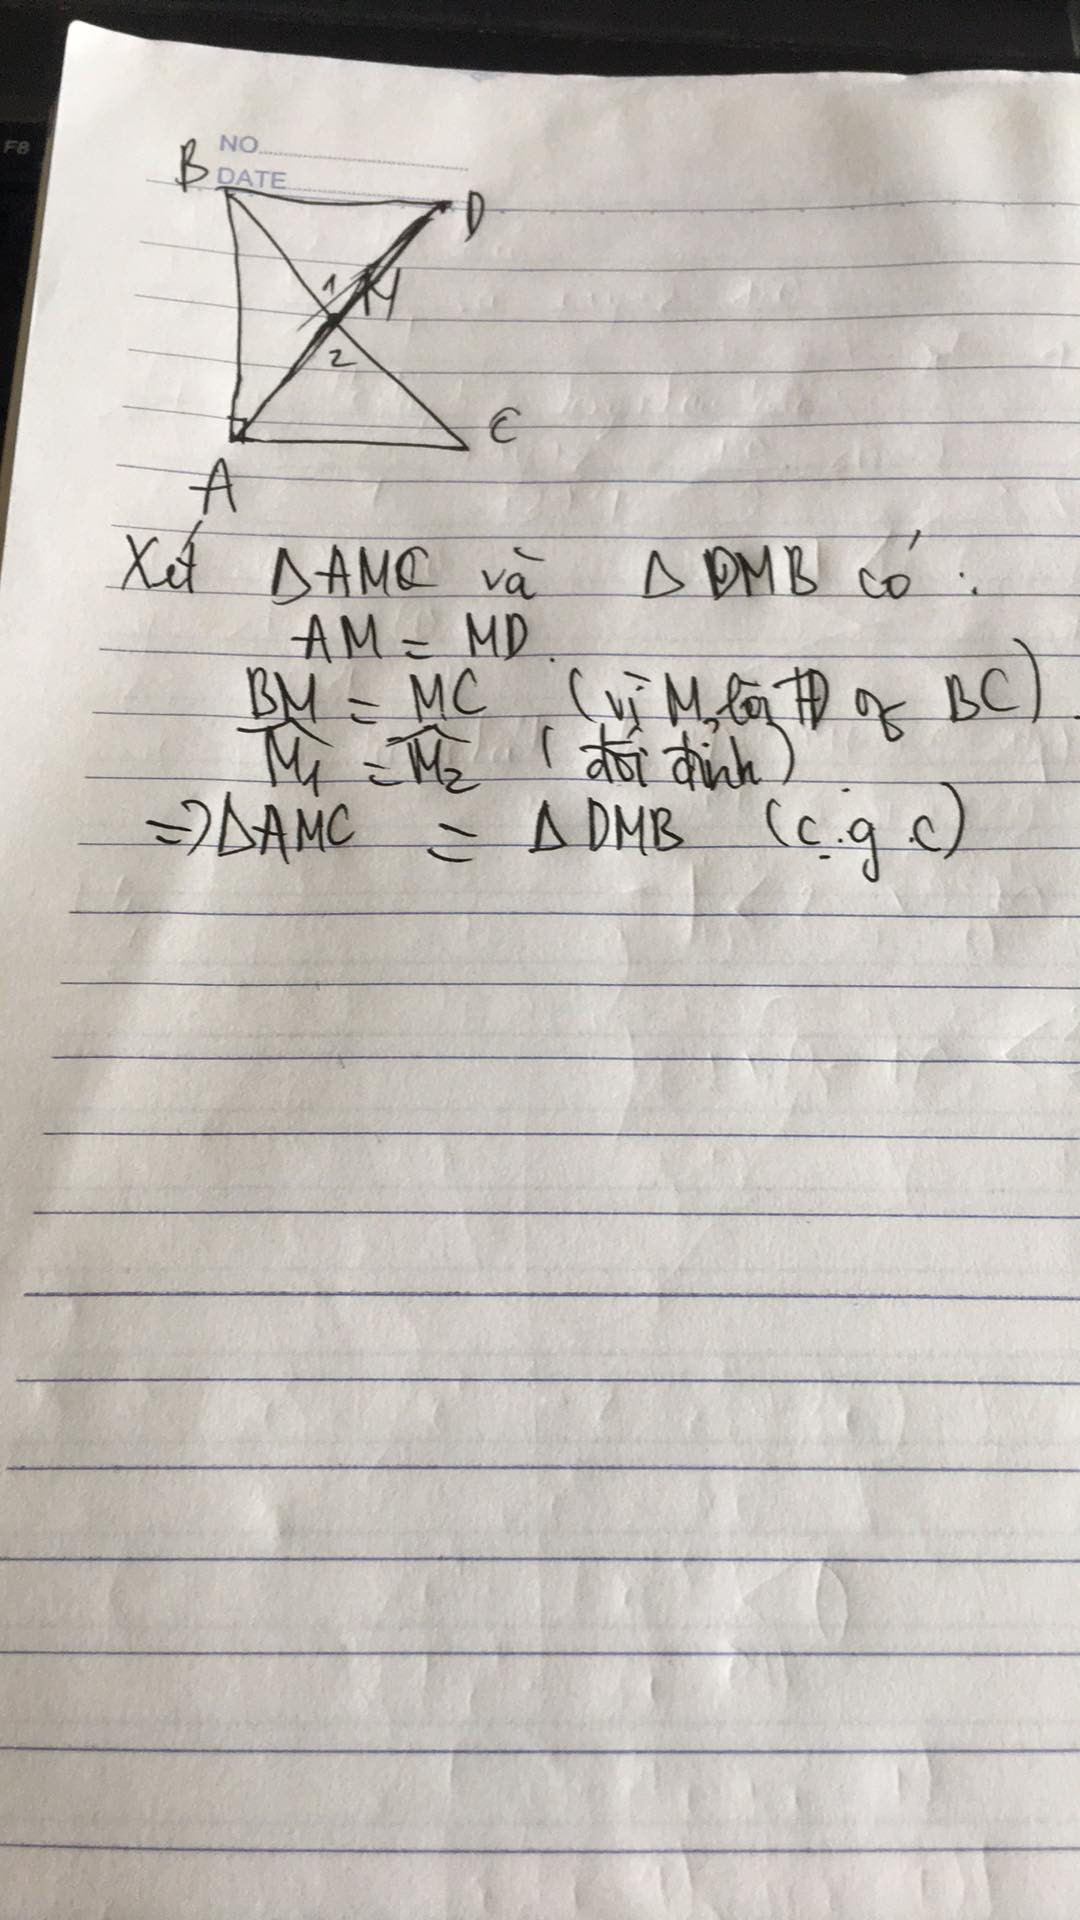 F8
NO
DATE
B
D
1
M
2
C
A
Xét ΔAMC và ΔDMB có :
AM = MD.
BM = MC (vì M là TĐ of BC)
M̂₁ = M̂₂ (đối đỉnh)
=> ΔAMC = ΔDMB (c.g.c)